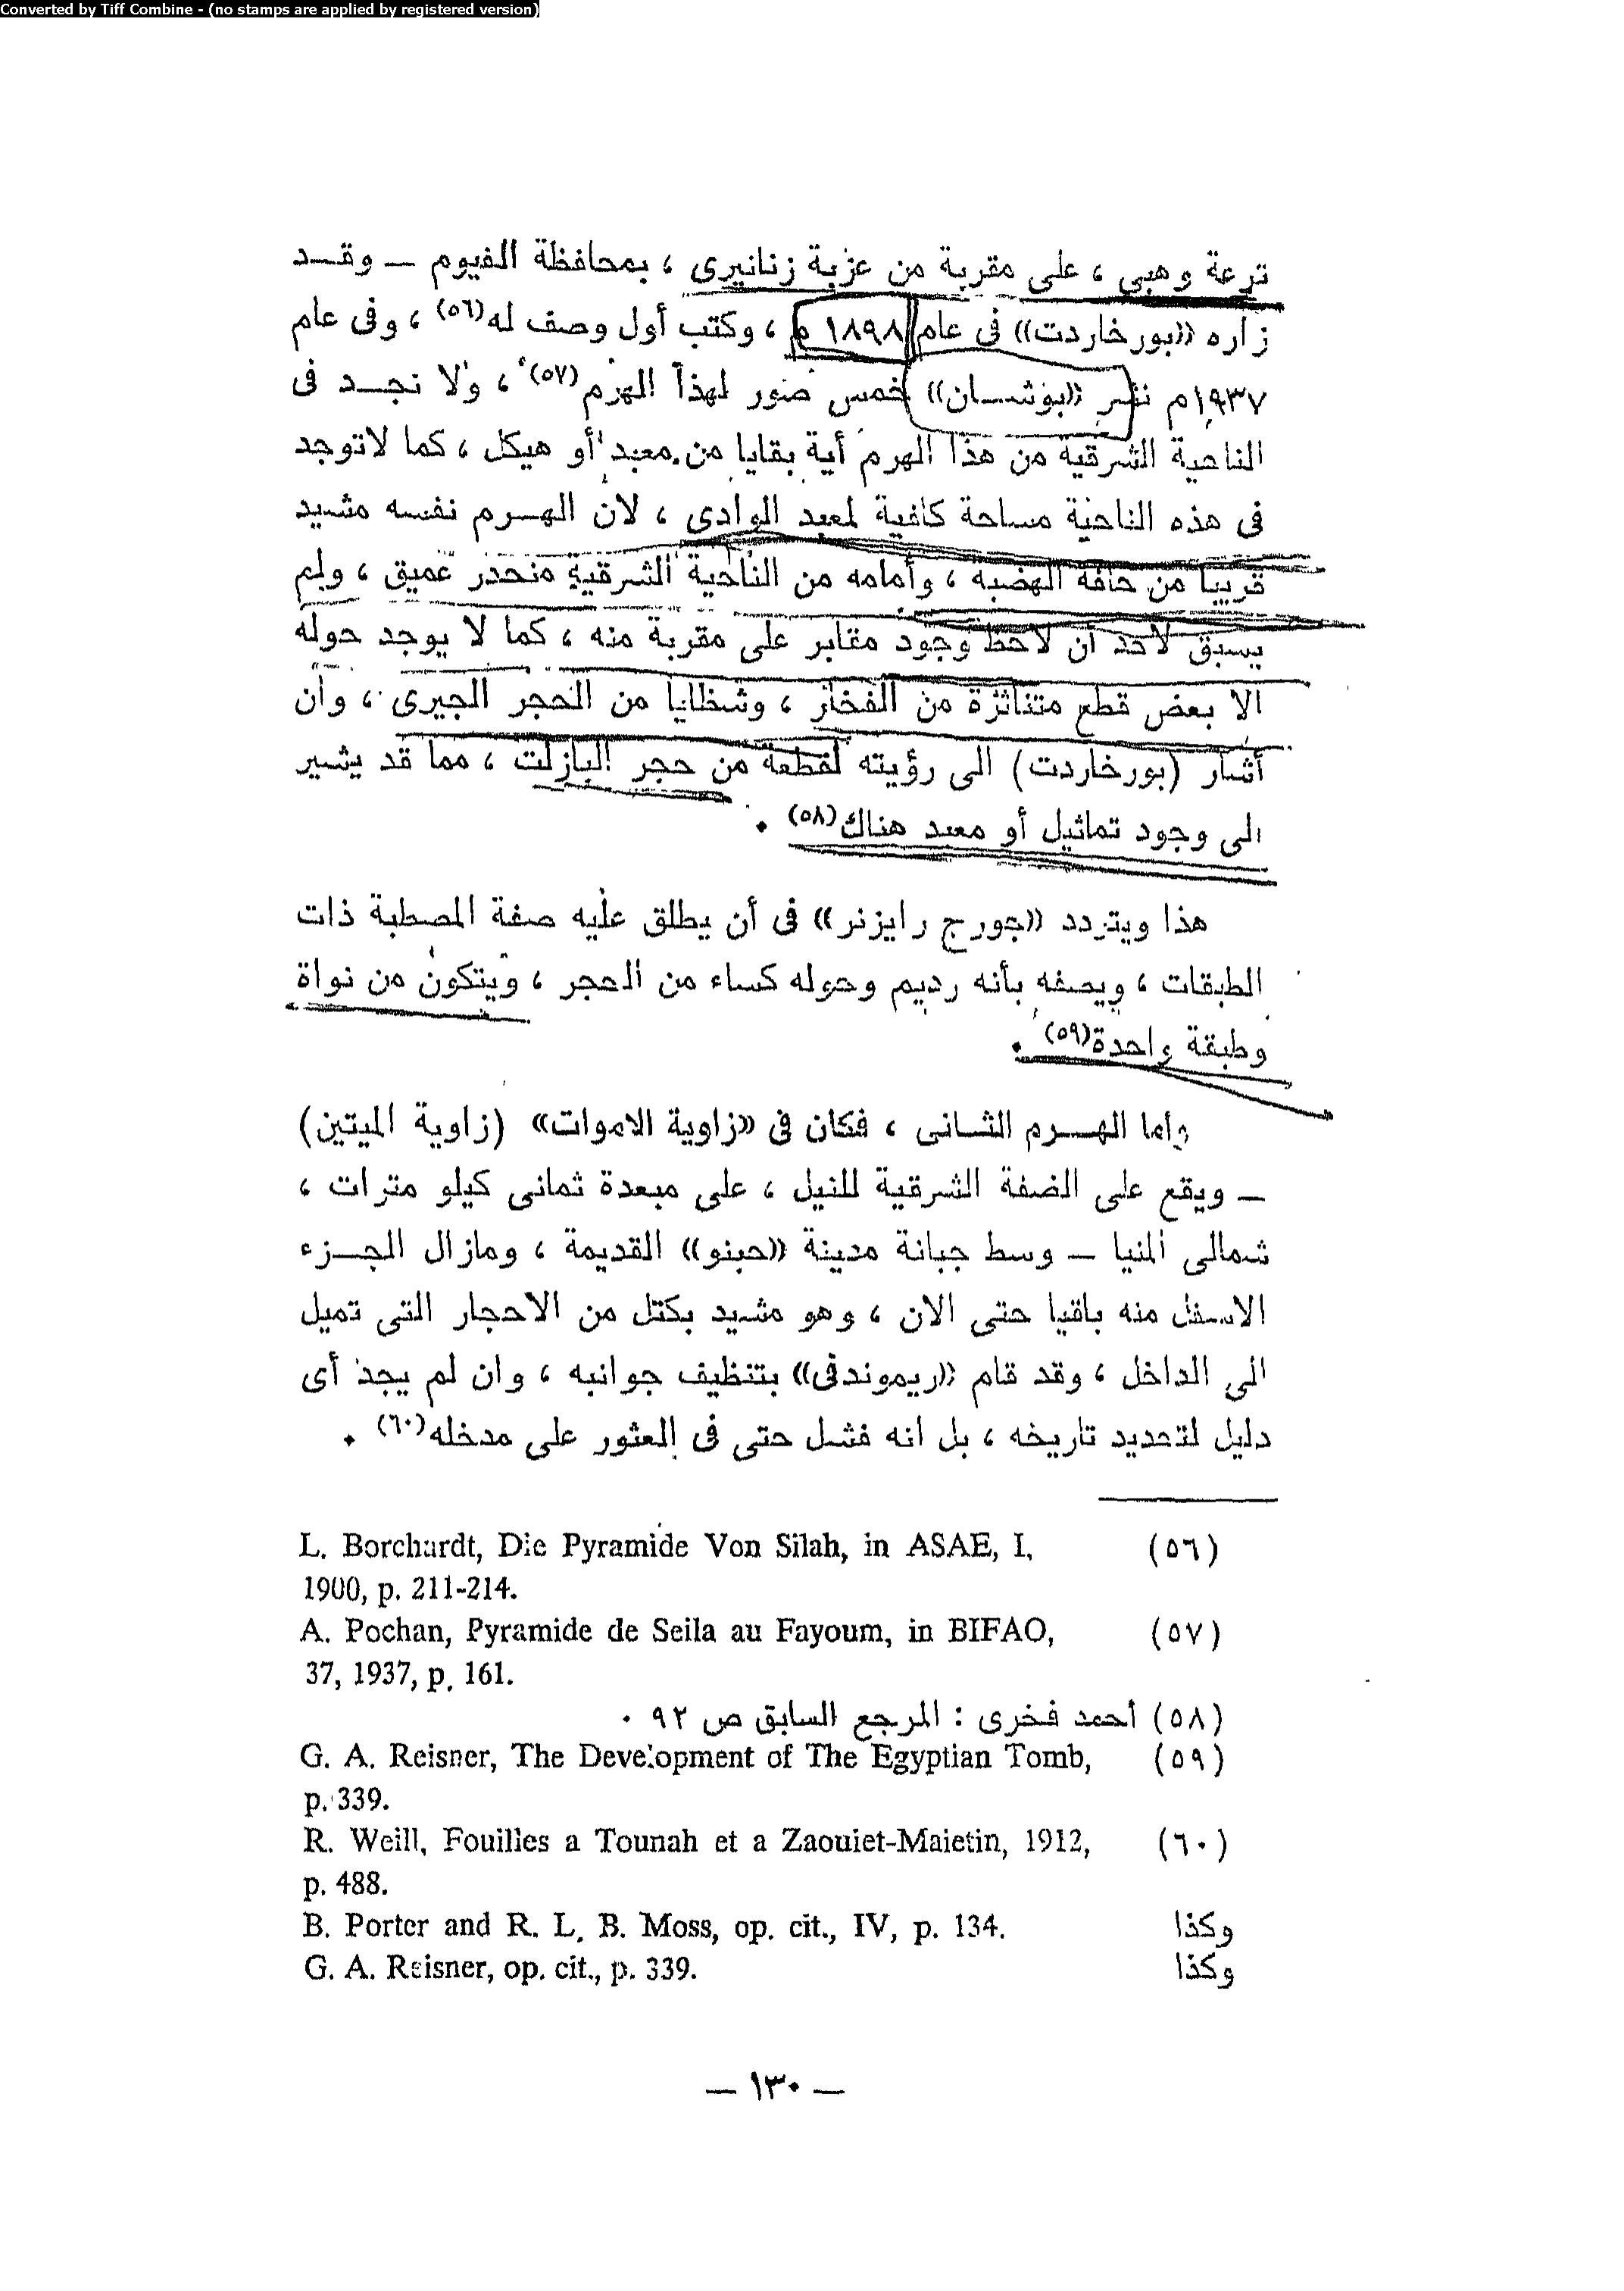 Converted by Tiff Combine - (no stamps are applied by registered version)
ترعة وهبى ، على مقربة من عزبة زنانيرى ، بمحافظة الفيوم — وقــد
زاره «بورخاردت» فى عام ١٨٩٨ م ، وكتب أول وصف له(٥٦) ، وفى عام
١٩٣٧م نشر «بوشــان» خمس صور لهذا الهرم(٥٧) ، ولا نجــد فى
الناحية الشرقية من هذا الهرم أية بقايا من معبد أو هيكل ، كما لاتوجد
فى هذه الناحية مساحة كافية لمعبد الوادى ، لان الهــرم نفسه مشيد
قريبا من حافة الهضبة ، وأمامه من الناحية الشرقية منحدر عميق ، ولم
يسبق لاحد أن لاحظ وجود مقابر على مقربة منه ، كما لا يوجد حوله
الا بعض قطع متناثرة من الفخار ، وشظايا من الحجر الجيرى ، وان
أشار (بورخاردت) الى رؤيته لقطعة من حجر البازلت ، مما قد يشير
الى وجود تماثيل أو معبد هناك(٥٨) .
هذا ويتردد «جورج رايزنر» فى أن يطلق عليه صفة المصطبة ذات
الطبقات ، ويصفه بأنه رديم وحوله كساء من الحجر ، ويتكون من نواة
وطبقة واحدة(٥٩) .
وأما الهــرم الثــانى ، فكان فى «زاوية الاموات» (زاوية الميتين)
— ويقع على الضفة الشرقية للنيل ، على مبعدة ثمانى كيلو مترات ،
شمالى المنيا — وسط جبانة مدينة «حبنو» القديمة ، ومازال الجــزء
الاسفل منه باقيا حتى الان ، وهو مشيد بكتل من الاحجار التى تميل
الى الداخل ، وقد قام «ريموندفى» بتنظيف جوانبه ، وان لم يجد أى
دليل لتحديد تاريخه ، بل انه فشل حتى فى العثور على مدخله(٦٠) .
L. Borchardt, Die Pyramide Von Silah, in ASAE, I, (٥٦)
1900, p. 211-214.
A. Pochan, Pyramide de Seila au Fayoum, in BIFAO, (٥٧)
37, 1937, p. 161.
(٥٨) أحمد فخرى : المرجع السابق ص ٩٢ .
G. A. Reisner, The Development of The Egyptian Tomb, (٥٩)
p. 339.
R. Weill, Fouilles a Tounah et a Zaouiet-Maietin, 1912, (٦٠)
p. 488.
B. Porter and R. L. B. Moss, op. cit., IV, p. 134. وكذا
G. A. Reisner, op. cit., p. 339. وكذا
— ١٣٠ —